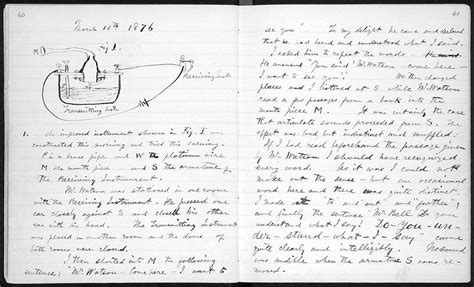 40
March 10th 1876
Fig. 1.
M
Receiving Inst.
Transmitting Inst.
1. The improved instrument shown in Fig. I was
constructed this morning and tried this evening.
P is a brass pipe and W the platinum wire
M the mouth piece and S the armature of
the Receiving Instrument.
Mr. Watson was stationed in one room
with the Receiving Instrument. He pressed one
ear closely against S and closed his other
ear with his hand. The Transmitting Instrument
was placed in another room and the doors of
both rooms were closed.
I then shouted into M the following
sentence: "Mr. Watson — Come here — I want to
41
see you". To my delight he came and declared
that he had heard and understood what I said.
I asked him to repeat the words.
He answered "You said 'Mr. Watson — come here —
I want to see you'." We then changed
places and I listened at S while Mr. Watson
read a few passages from a book into the
mouth piece M. It was certainly the case
that articulate sounds proceeded from S. The
effect was loud but indistinct and muffled.
If I had read beforehand the passage given
by Mr. Watson I should have recognized
every word. As it was I could not
make out the sense — but an occasional
word here and there was quite distinct.
I made out "to" and "out" and "further";
and finally the sentence "Mr. Bell do you
understand what I say? Do-you-un-
der-stand-what-I-say" came
quite clearly and intelligibly. No sound
was audible when the armature S was re-
moved.